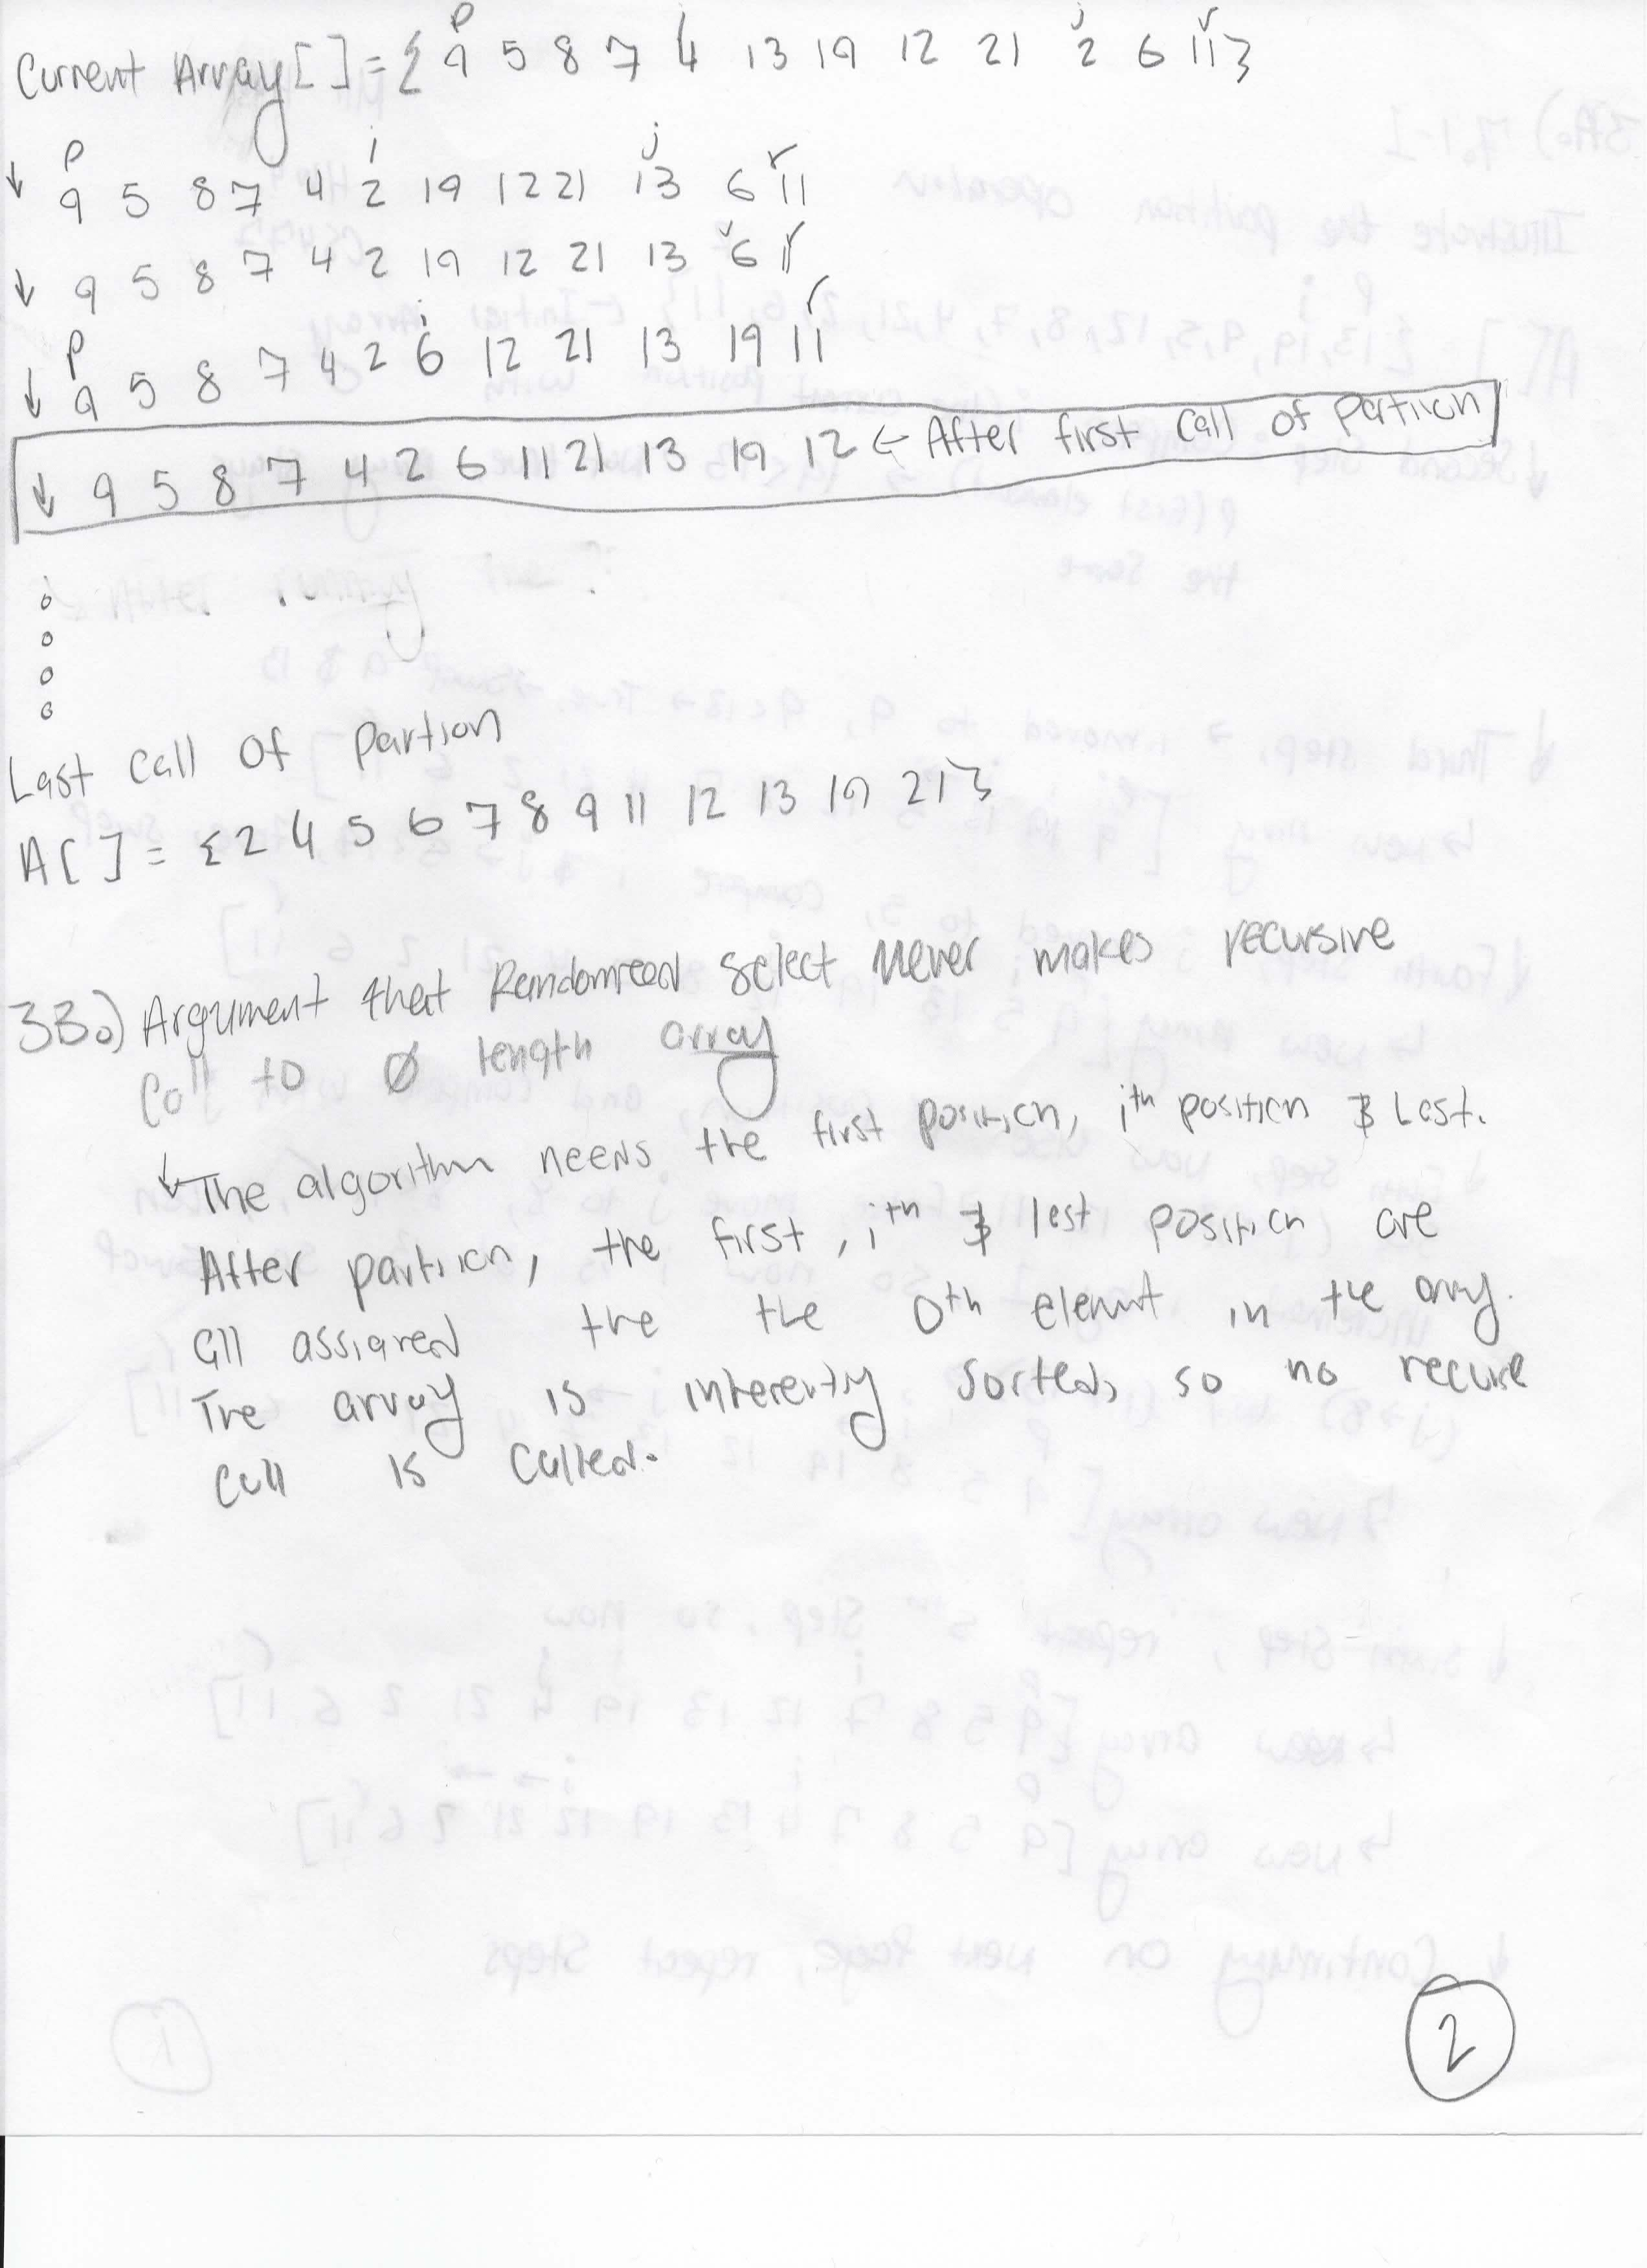 p i j r
Current Array[] = { 9 5 8 7 4 13 19 12 21 2 6 11}
p i j r
↓ 9 5 8 7 4 2 19 12 21 13 6 11
j r
↓ 9 5 8 7 4 2 19 12 21 13 6 11
p i r
↓ 9 5 8 7 4 2 6 12 21 13 19 11
↓ 9 5 8 7 4 2 6 11 21 13 19 12 ← After first call of partiion
Last call of partion
A[] = {2 4 5 6 7 8 9 11 12 13 19 21}
3B.) Argument that Randomized Select never makes recursive
Call to Ø length array
↳ The algorithm needs the first position, ith position & Last.
After partiion, the first, ith & last position are
all assigned the the 0th elemnt in the array.
The array is inherently sorted, so no recurse
call is called.
2